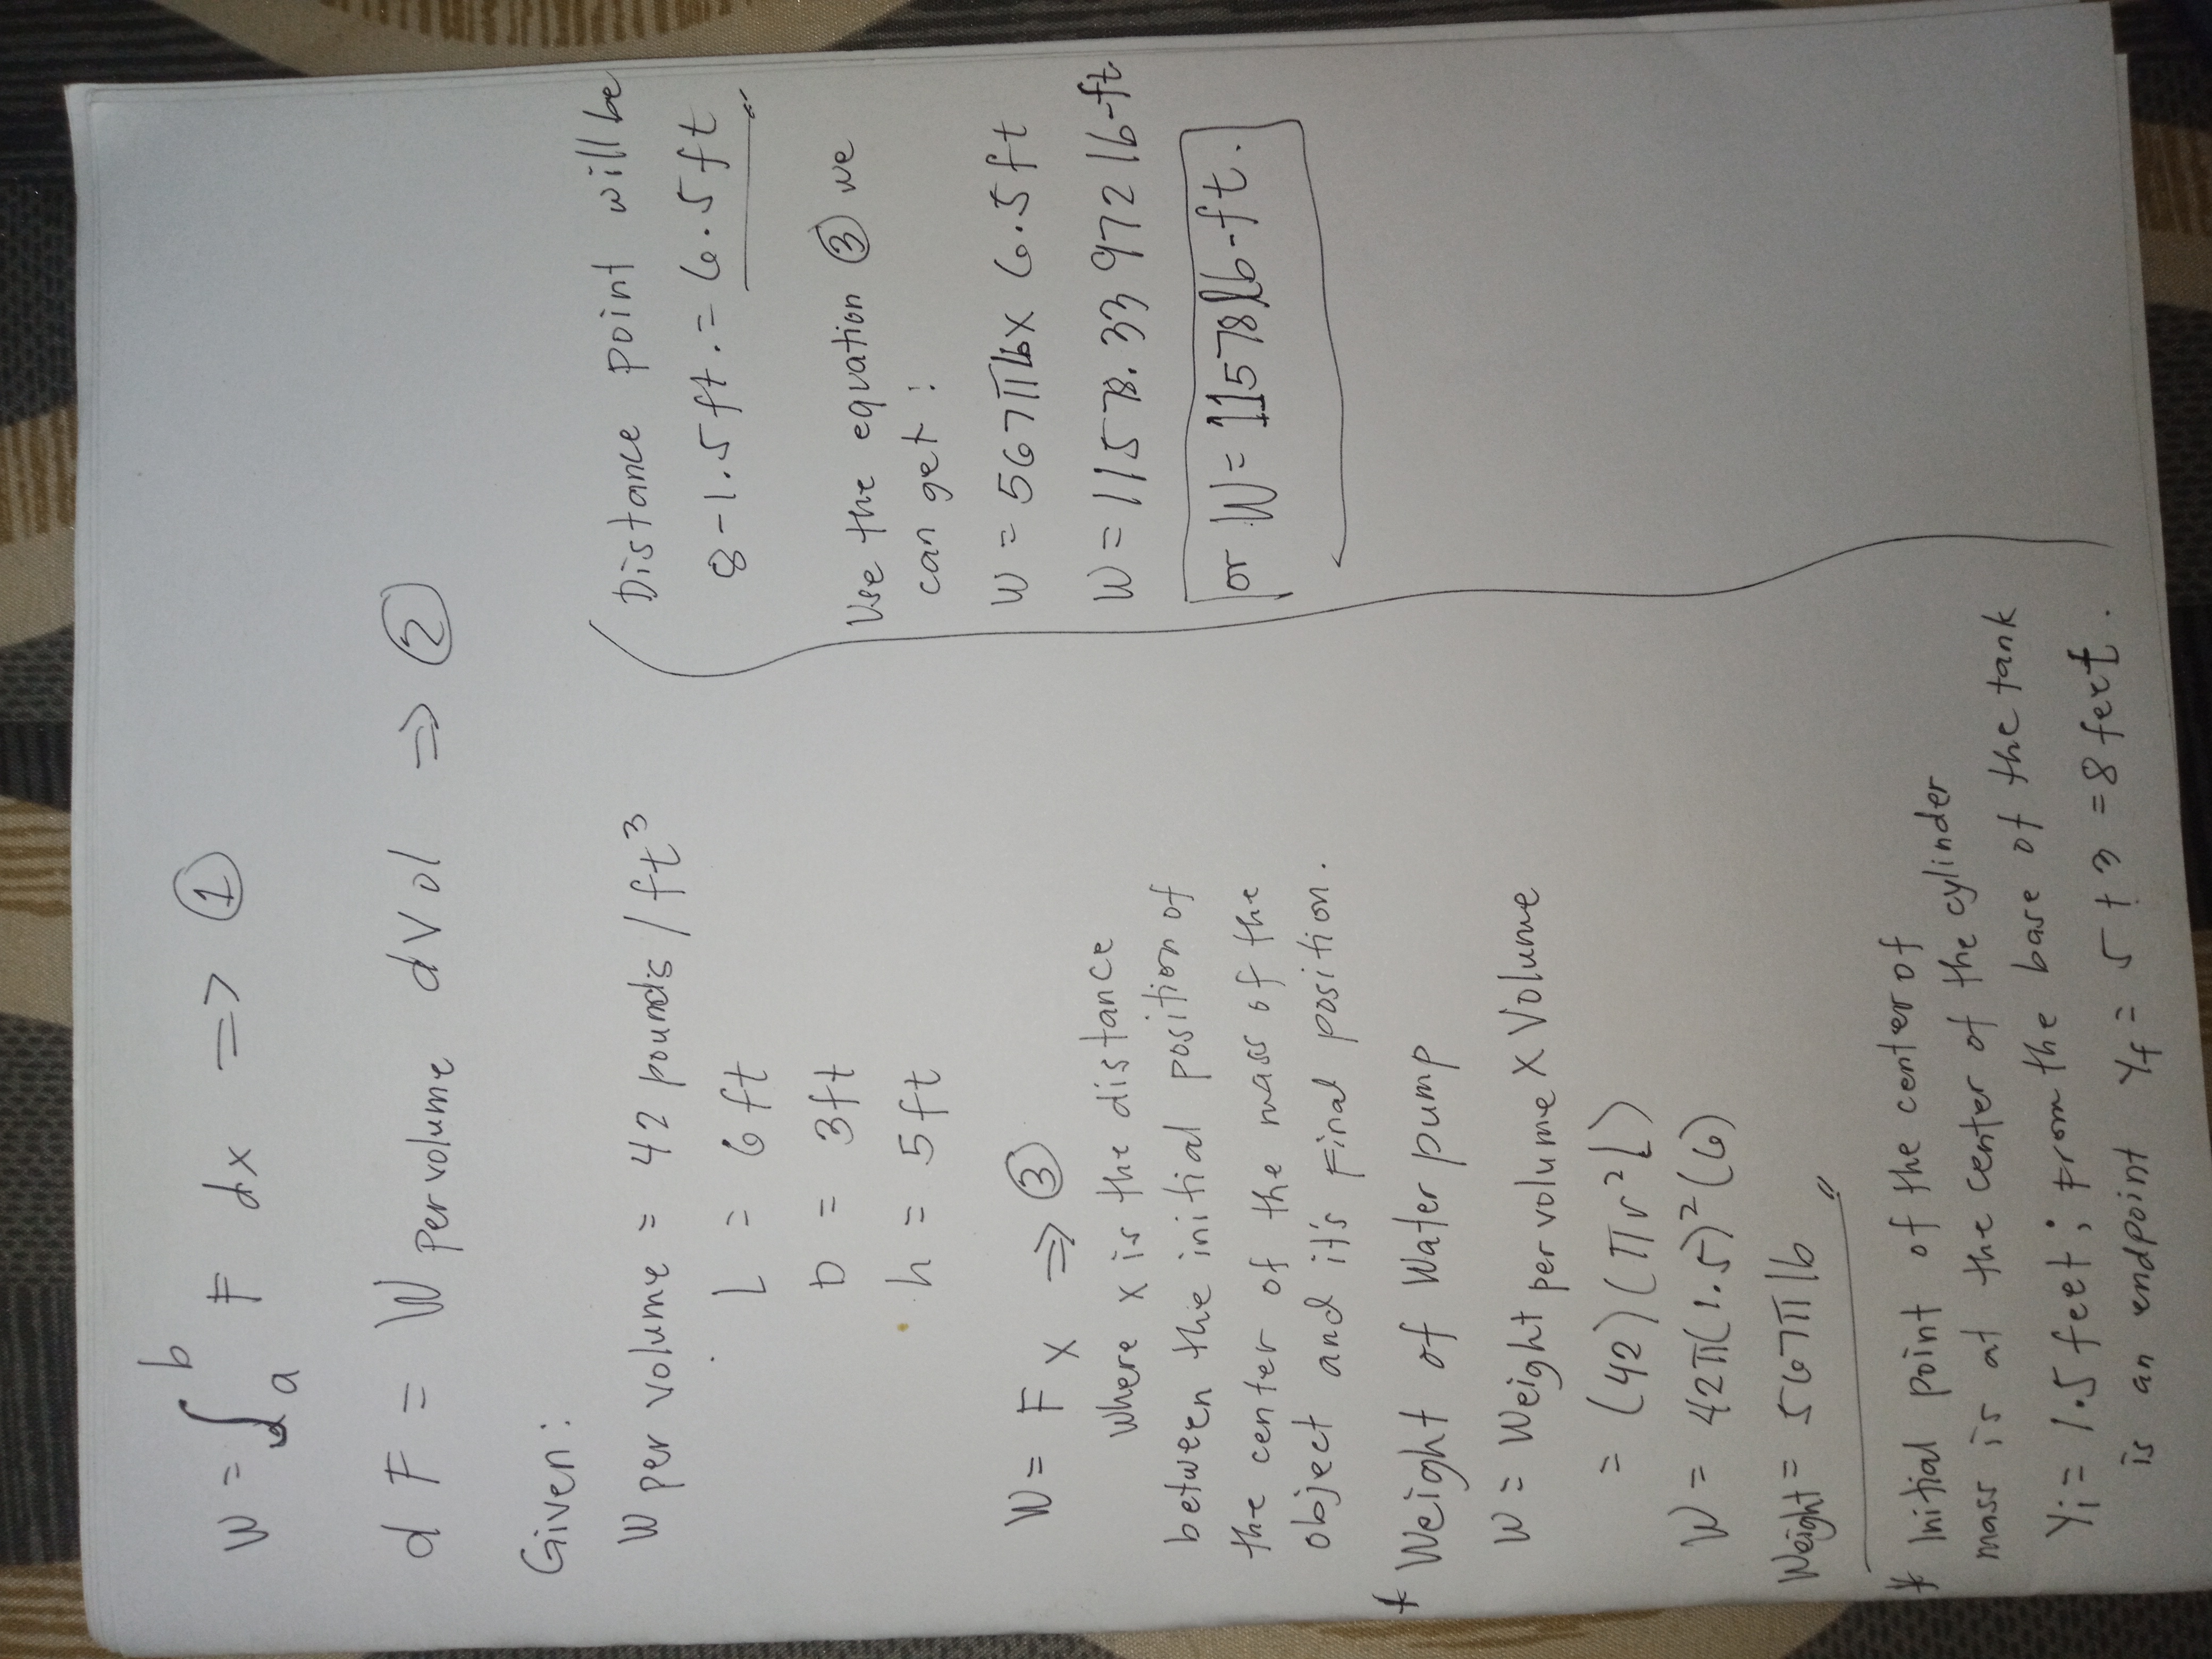 W = ∫ₐᵇ F dx => ①
dF = W per volume dVol => ②
Given:
W per volume = 42 pounds/ft³
L = 6 ft
D = 3ft
h = 5ft
W = F x => ③
where x is the distance
between the initial position of
the center of the mass of the
object and it's Final position.
* Weight of Water pump
W = Weight per volume x Volume
= (42)(πr²L)
W = 42π(1.5)²(6)
Weight = 567π lb
* Initial point of the center of
mass is at the center of the cylinder
Yi = 1.5 feet; from the base of the tank
is an endpoint Yf = 5+3 = 8 feet.
Distance point will be
8-1.5ft. = 6.5ft
Use the equation ③ we
can get:
W = 567π lb x 6.5ft
W = 11578.33972 lb-ft
or W = 11578 lb-ft.